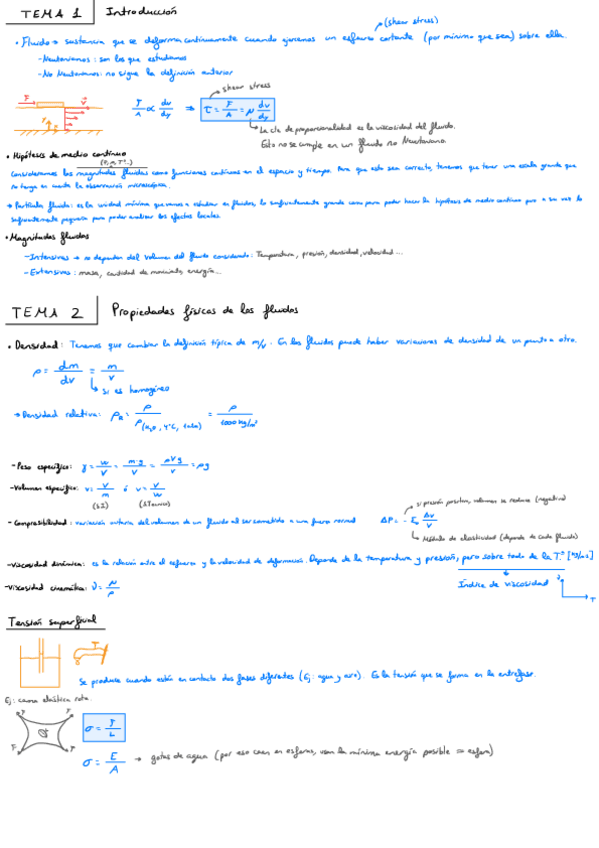 TEMA 1 Introducción
(shear stress)
• Fluido → sustancia que se deforma continuamente cuando ejercemos un esfuerzo cortante (por mínimo que sea) sobre ella.
- Newtonianos: son los que estudiamos
- No Newtonianos: no sigue la definición anterior
shear stress
F/A ∝ dv/dy ⇒ τ = F/A = μ dv/dy
La cte de proporcionalidad es la viscosidad del fluido.
Esto no se cumple en un fluido no Newtoniano.
• Hipótesis de medio continuo
Consideramos las magnitudes fluidas como funciones continuas en el espacio y tiempo. Para que esto sea correcto, tenemos que tener una escala grande que
no tenga en cuenta la observación microscópica.
→ Partícula fluida: es la unidad mínima que vamos a estudiar en fluidos, lo suficientemente grande como para poder hacer la hipótesis de medio continuo pero a su vez lo
suficientemente pequeña para poder analizar los efectos locales.
• Magnitudes fluidas
- Intensivas → no dependen del volumen del fluido considerado: Temperatura, presión, densidad, velocidad...
- Extensivas: masa, cantidad de movimiento, energía...
TEMA 2 Propiedades físicas de los fluidos
• Densidad: Tenemos que cambiar la definición típica de m/v. En los fluidos puede haber variaciones de densidad de un punto a otro.
ρ = dm/dv = m/v
si es homogéneo
→ Densidad relativa: ρR = ρ/ρ(H2O, 4ºC, 1atm) = ρ/1000 kg/m³
- Peso específico: γ = w/v = m·g/v = ρVg/v = ρg
- Volumen específico: v = V/m ó v = V/w
(SI) (STécnico)
si presión positiva, volumen se reduce (negativo)
- Compresibilidad: variación unitaria del volumen de un fluido al ser sometido a una fuerza normal ΔP = - E₀ ΔV/V
Módulo de elasticidad (depende de cada fluido)
- Viscosidad dinámica: es la relación entre el esfuerzo y la velocidad de deformación. Depende de la temperatura y presión, pero sobre todo de la Tº [kg/m·s]
Índice de viscosidad
T
- Viscosidad cinemática: ν = μ/ρ
Tensión superficial
Se produce cuando están en contacto dos fases diferentes (Ej: agua y aire). Es la tensión que se forma en la interfase.
Ej: cama elástica rota.
σ = F/L
σ = E/A → gotas de agua (por eso caen en esferas, usan la mínima energía posible ⇒ esfera)